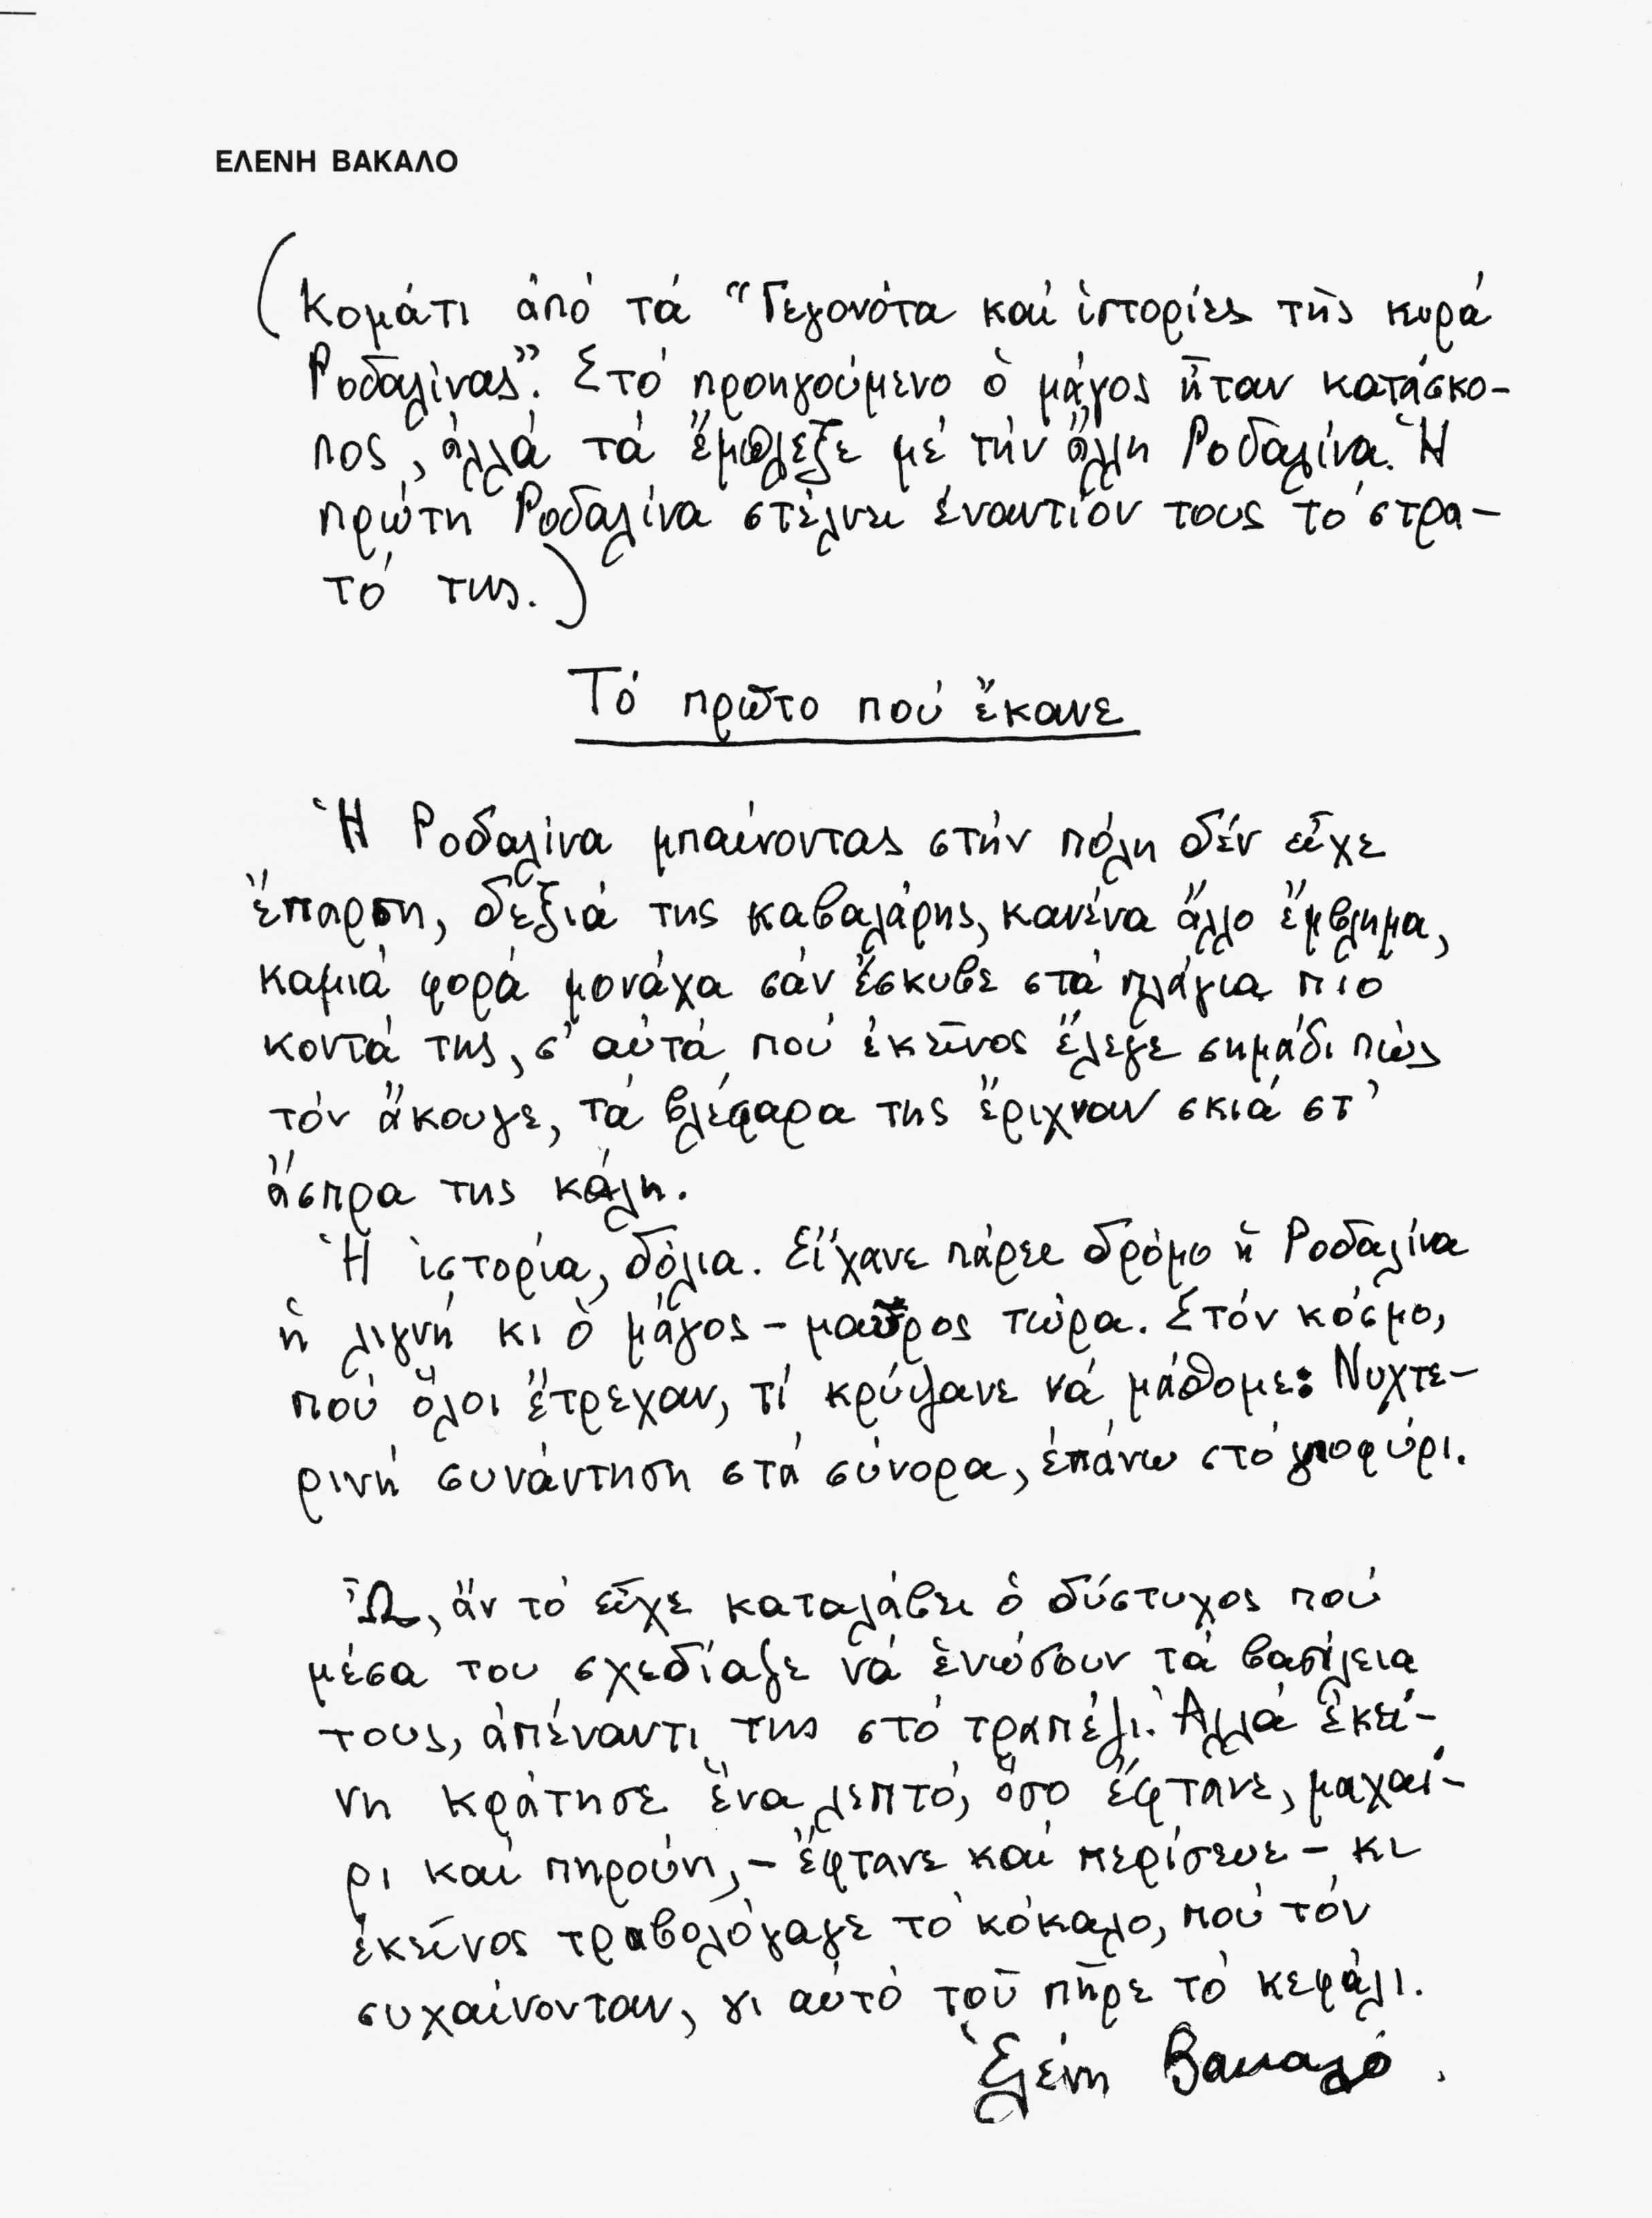 ΕΛΕΝΗ ΒΑΚΑΛΟ
(Κομάτι ἀπό τά "Γεγονότα καί ἱστορίες τῆς κυρά
Ροδαλίνας". Στό προηγούμενο ὁ μάγος ἦταν κατάσκο-
πος, ἀλλά τά ἔμπλεξε μέ τήν ἄλλη Ροδαλίνα. Ἡ
πρώτη Ροδαλίνα στέλνει ἐναντίον τους τό στρα-
τό της.)
Τό πρῶτο πού ἔκανε
Ἡ Ροδαλίνα μπαίνοντας στήν πόλη δέν εἶχε
ἔπαρση, δεξιά της καβαλάρης, κανένα ἄλλο ἔμβλημα,
καμιά φορά μονάχα σάν ἔσκυβε στά πλάγια πιό
κοντά της, σ' αὐτά πού ἐκεῖνος ἔλεγε σημάδι πώς
τόν ἄκουγε, τά βλέφαρα της ἔριχναν σκιά στ'
ἄσπρα της κάλη.
Ἡ ἱστορία, δόλια. Εἴχανε πάρει δρόμο ἡ Ροδαλίνα
ἡ λιγνή κι ὁ μάγος - μαῦρος τώρα. Στόν κόσμο,
πού ὅλοι ἔτρεχαν, τί κρύψανε νά μάθομε: Νυχτε-
ρινή συνάντηση στά σύνορα, ἐπάνω στό γιοφύρι.
Ὦ, ἄν τό εἶχε καταλάβει ὁ δύστυχος πού
μέσα του σχεδίαζε νά ἑνώσουν τά βασίλεια
τους, ἀπέναντι της στό τραπέζι. Ἀλλά ἐκεί-
νη κράτησε ἕνα λεπτό, ὅσο ἔφτανε, μαχαί-
ρι καί πηρούνι, - ἔφτανε καί περίσευε - κι
ἐκεῖνος τραβολόγαγε τό κόκαλο, πού τόν
συχαίνονταν, γι αὐτό τοῦ πῆρε τό κεφάλι.
Ἑλένη Βακαλό